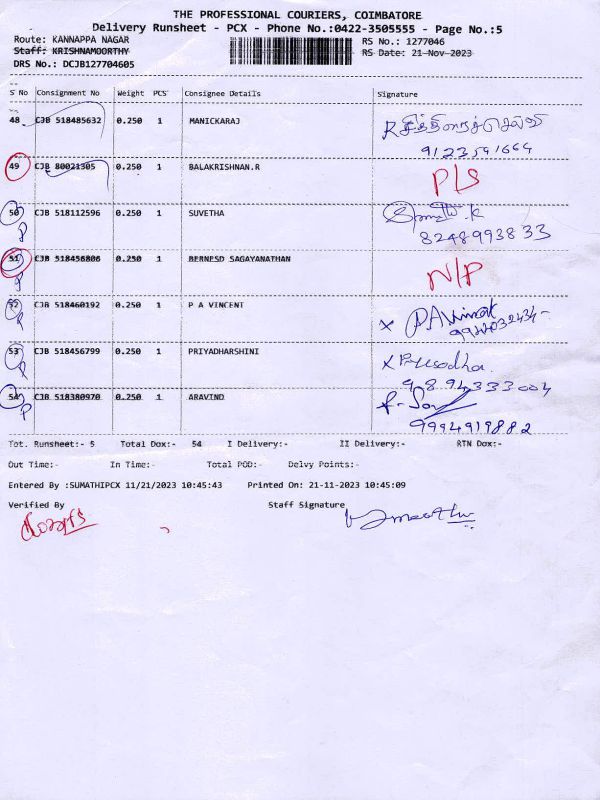 THE PROFESSIONAL COURIERS, COIMBATORE
Delivery Runsheet - PCX - Phone No.:0422-3505555 - Page No.:5
Route: KANNAPPA NAGAR RS No.: 1277046
Staff: KRISHNAMOORTHY RS Date: 21-Nov-2023
DRS No.: DCJB127704605
S No Consignment No Weight PCS Consignee Details Signature
48 CJB 518485632 0.250 1 MANICKARAJ
49 CJB 80021305 0.250 1 BALAKRISHNAN.R P/S
50 CJB 518112596 0.250 1 SUVETHA
8248993833
51 CJB 518456806 0.250 1 BERNESD SAGAYANATHAN N/P
52 CJB 518460192 0.250 1 P A VINCENT x P A Vincent
53 CJB 518456799 0.250 1 PRIYADHARSHINI x
9894333004
54 CJB 518380970 0.250 1 ARAVIND
9994919882
Tot. Runsheet:- 5 Total Dox:- 54 I Delivery:- II Delivery:- RTN Dox:-
Out Time:- In Time:- Total POD:- Delvy Points:-
Entered By :SUMATHIPCX 11/21/2023 10:45:43 Printed On: 21-11-2023 10:45:09
Verified By Staff Signature